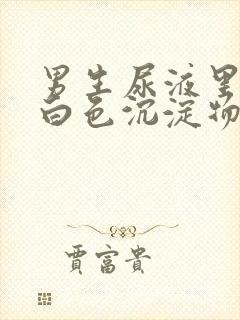 男生尿液里
白色沉淀物
賈富貴